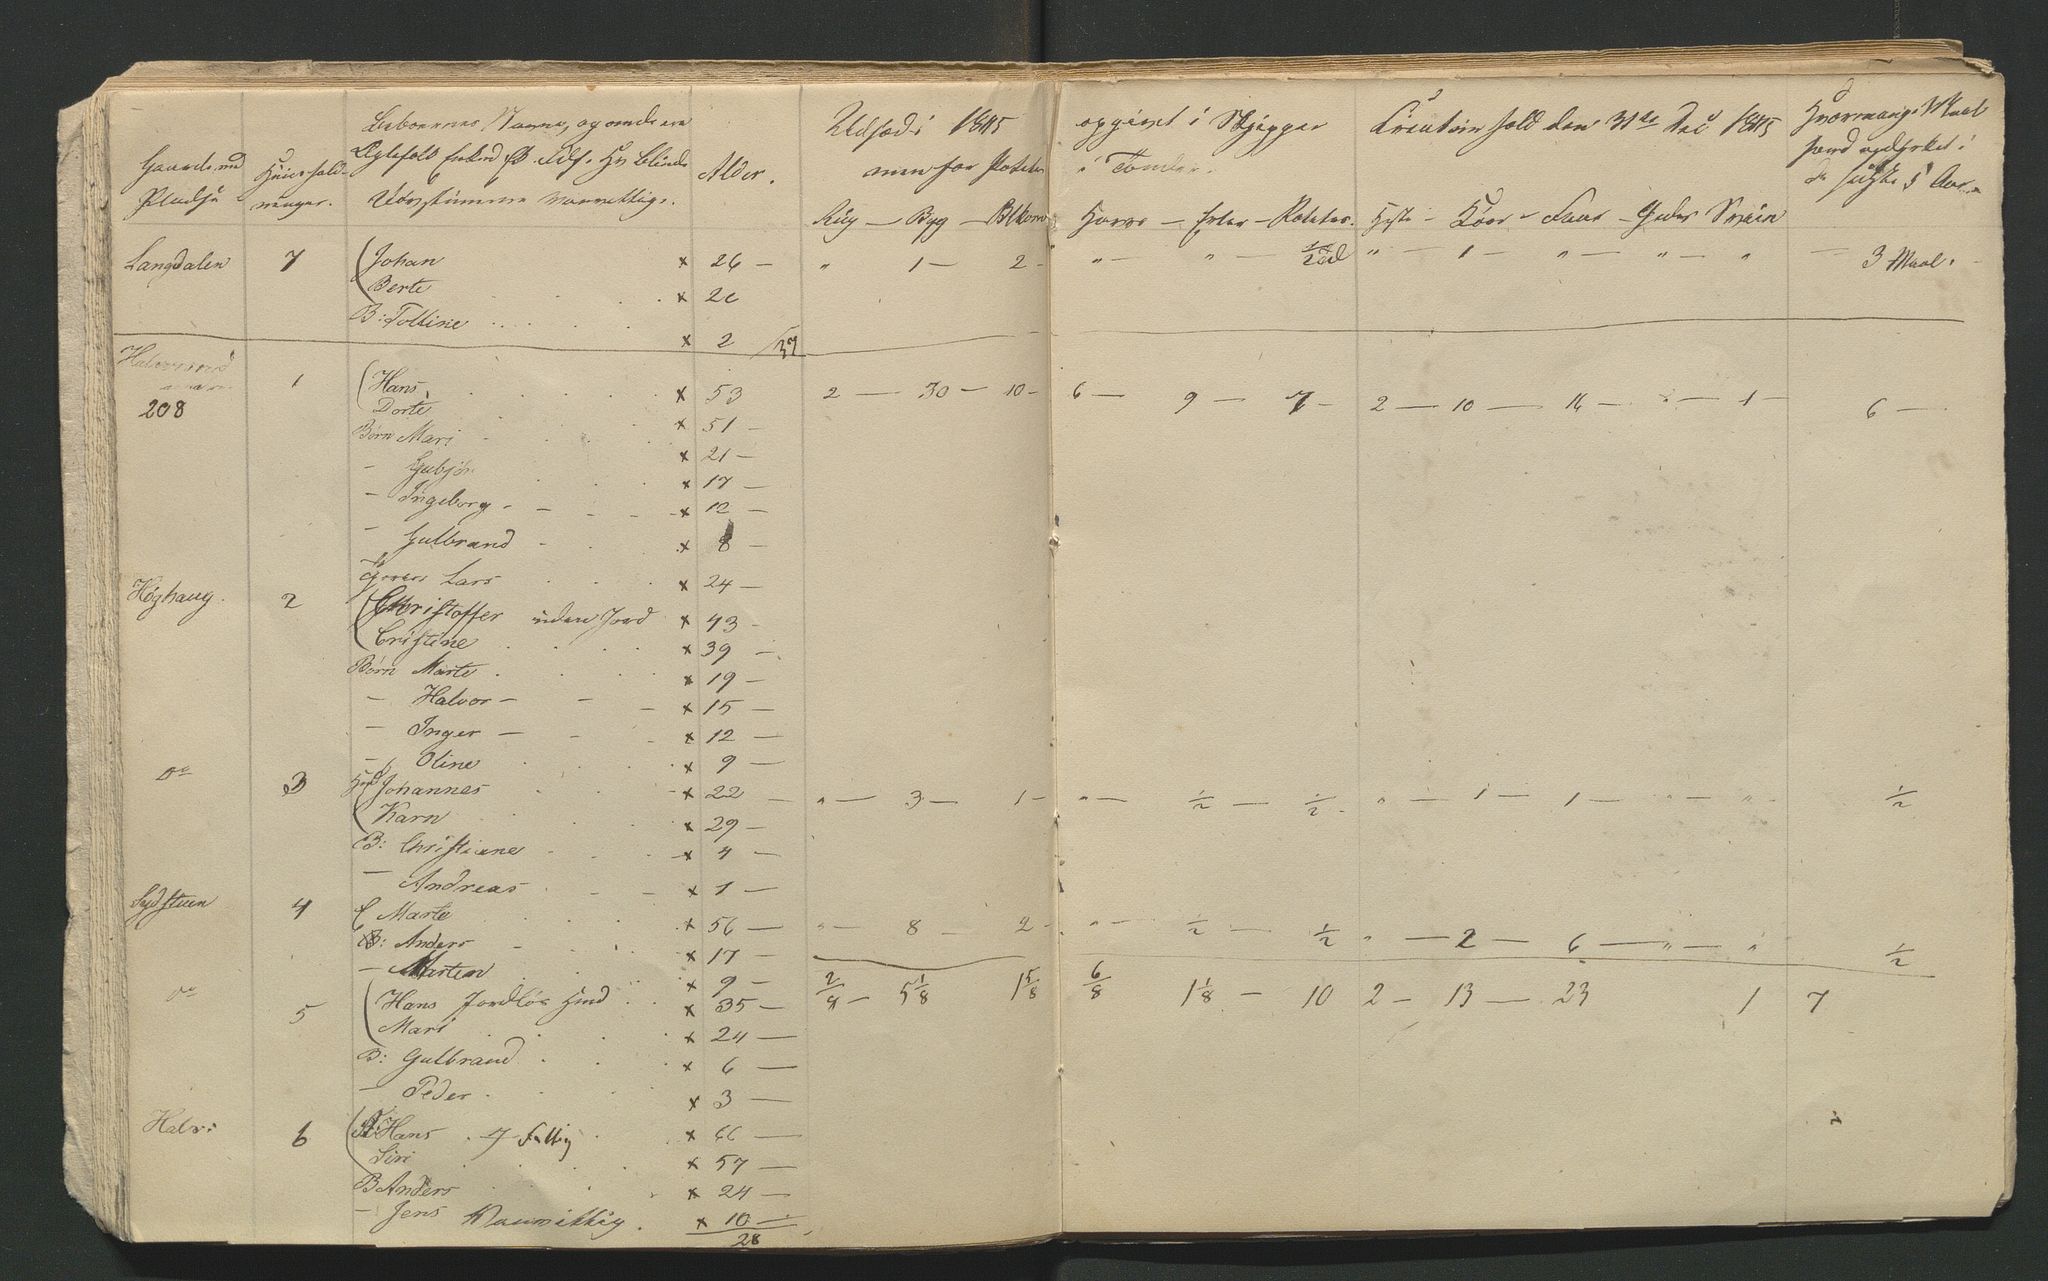 Beboernes Navne, og om de ere
Udsæd i 1845
opgivet i Skjæpper
Creaturhold den 31te Dec 1845
Hvormange Maal
Gaarde og
Huushold-
Ægtefolk
Blinde
Alder.
men for Poteter
i Tønder.
Pladse
ninger.
Døvstumme Vanvittige.
de sidste 5 Aar
Rug — Byg — Blkorn
Havre — Erter — Poteter
Heste — Köer — Faar — Geder Sviin
Langdalen 7 Johan × 26 — " 1 — 2 — " — " — 1/2 " — 1 — " — " — " — 3 Maal.
Berte × 20
B: Tolline × 2
37
208
1 Hans × 53 2 — 30 — 10 — 6 — 9 — 7 — 2 — 10 — 16 — " — 1 — 6 —
Dorte × 51 —
Børn Mari × 21 —
— Gubjör × 17 —
— Ingeborg × 12 —
— Gulbrand × 8 —
Lars × 24 —
Høghaug. 2 Christoffer uden Jord × 43 —
Cristine × 39 —
Børn Marte × 19 —
— Halvor × 15 —
— Inger × 12 —
— Oline × 9 —
Do 3 Hmd Johannes × 22 — " — 3 — 1 — " — 1/2 — 1/2 — " — 1 — 1 — " — " 1/2
Karn × 29 —
B: Christiane × 4 —
— Andreas × 1 —
4 E Marte × 56 — " — 8 — 2 — " — 1/2 — 1/2 " — 2 — 6 — " — " 1/2
B: Anders × 17 —
— Marten × 9 —
5 1/8 1 5/8 6/8 1 1/8 — 10 2 — 13 — 23 1 7
Do 5 Hans Jordløs Hmd × 35 —
Mari × 24 —
B: Gulbrand × 6 —
— Peder × 3 —
6 Hans Fattig × 66 —
Siri × 57 —
B Anders × 24 —
— Jens Vanvittig. × 10 —
28